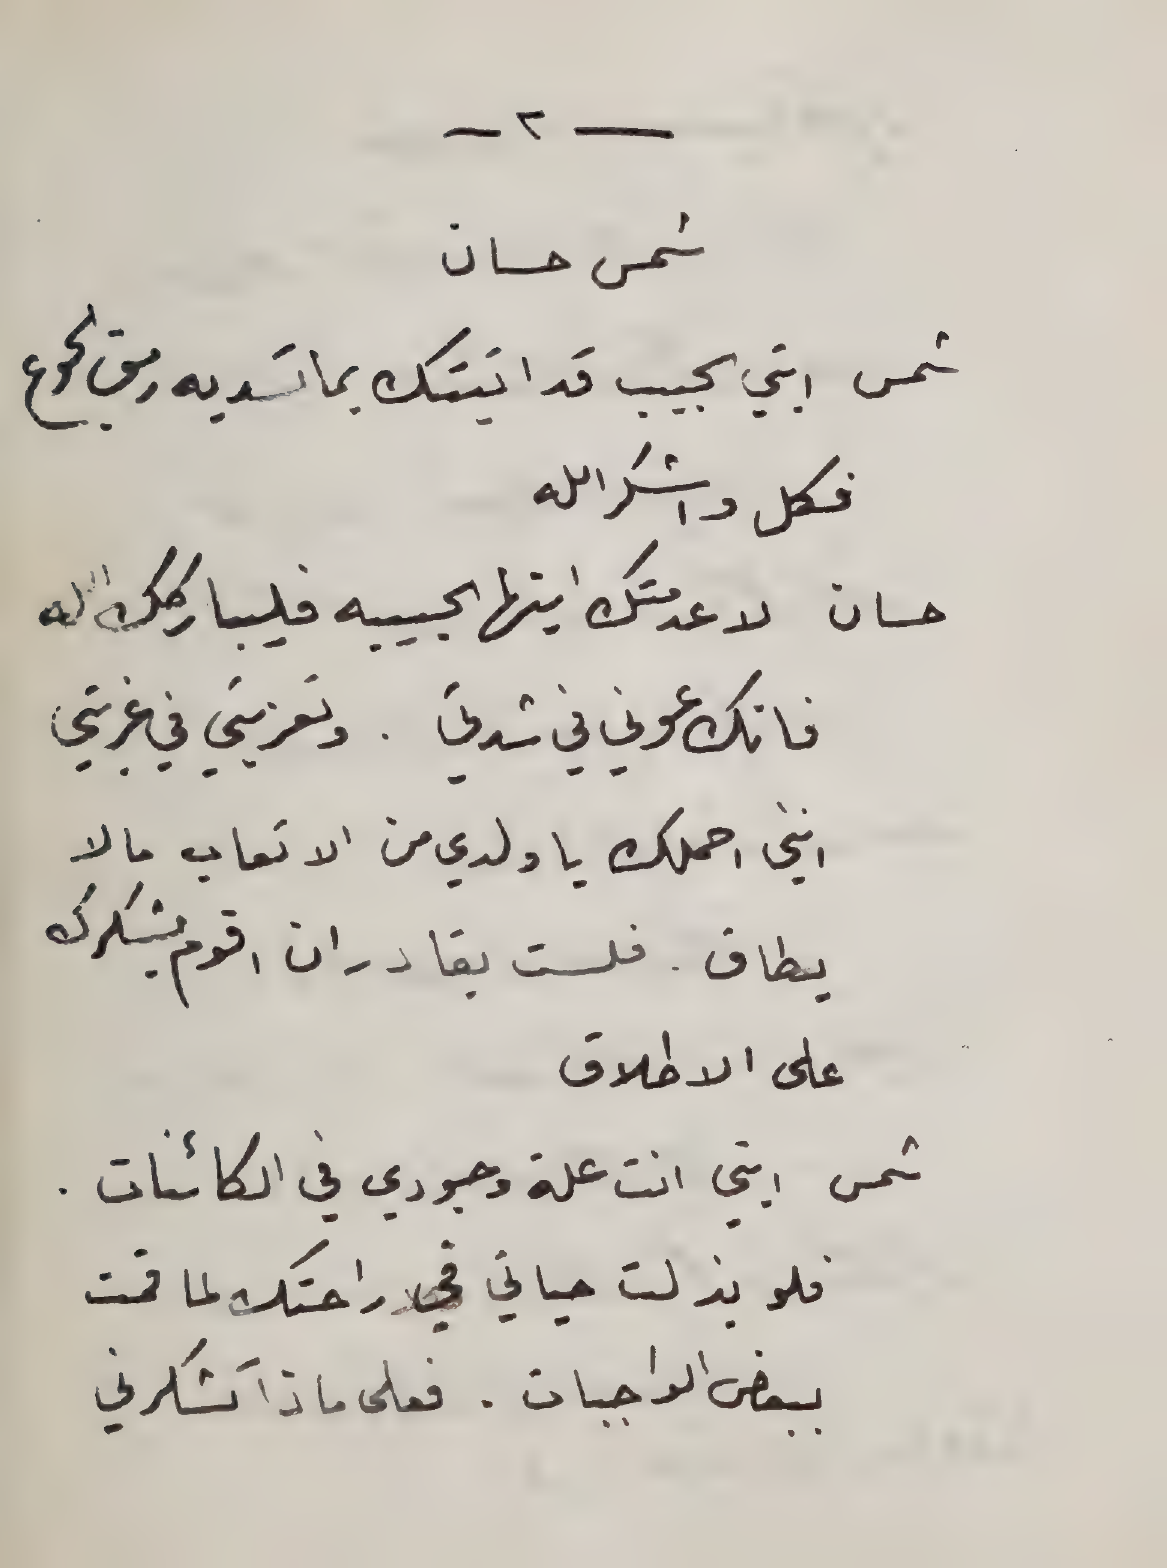 — ٢ —
شمس حسان
شمس ابتي الحبيب قد اتيتك بما تسد به رمق الجوع
فكل واشكر الله
حسان لا عدمتك ايتها الحبيبه فليباركك الله
فانك عوني في شدتي . وتعزيتي في غربتي
انني احملك يا ولدي من الاتعاب مالا
يطاق . فلست بقادر ان اقوم بشكرك
على الاطلاق
شمس ابتي انت علة وجودي في الكائنات .
فلو بذلت حياتي في راحتك لما قمت
ببعض الواجبات . فعلى ماذا تشكرني